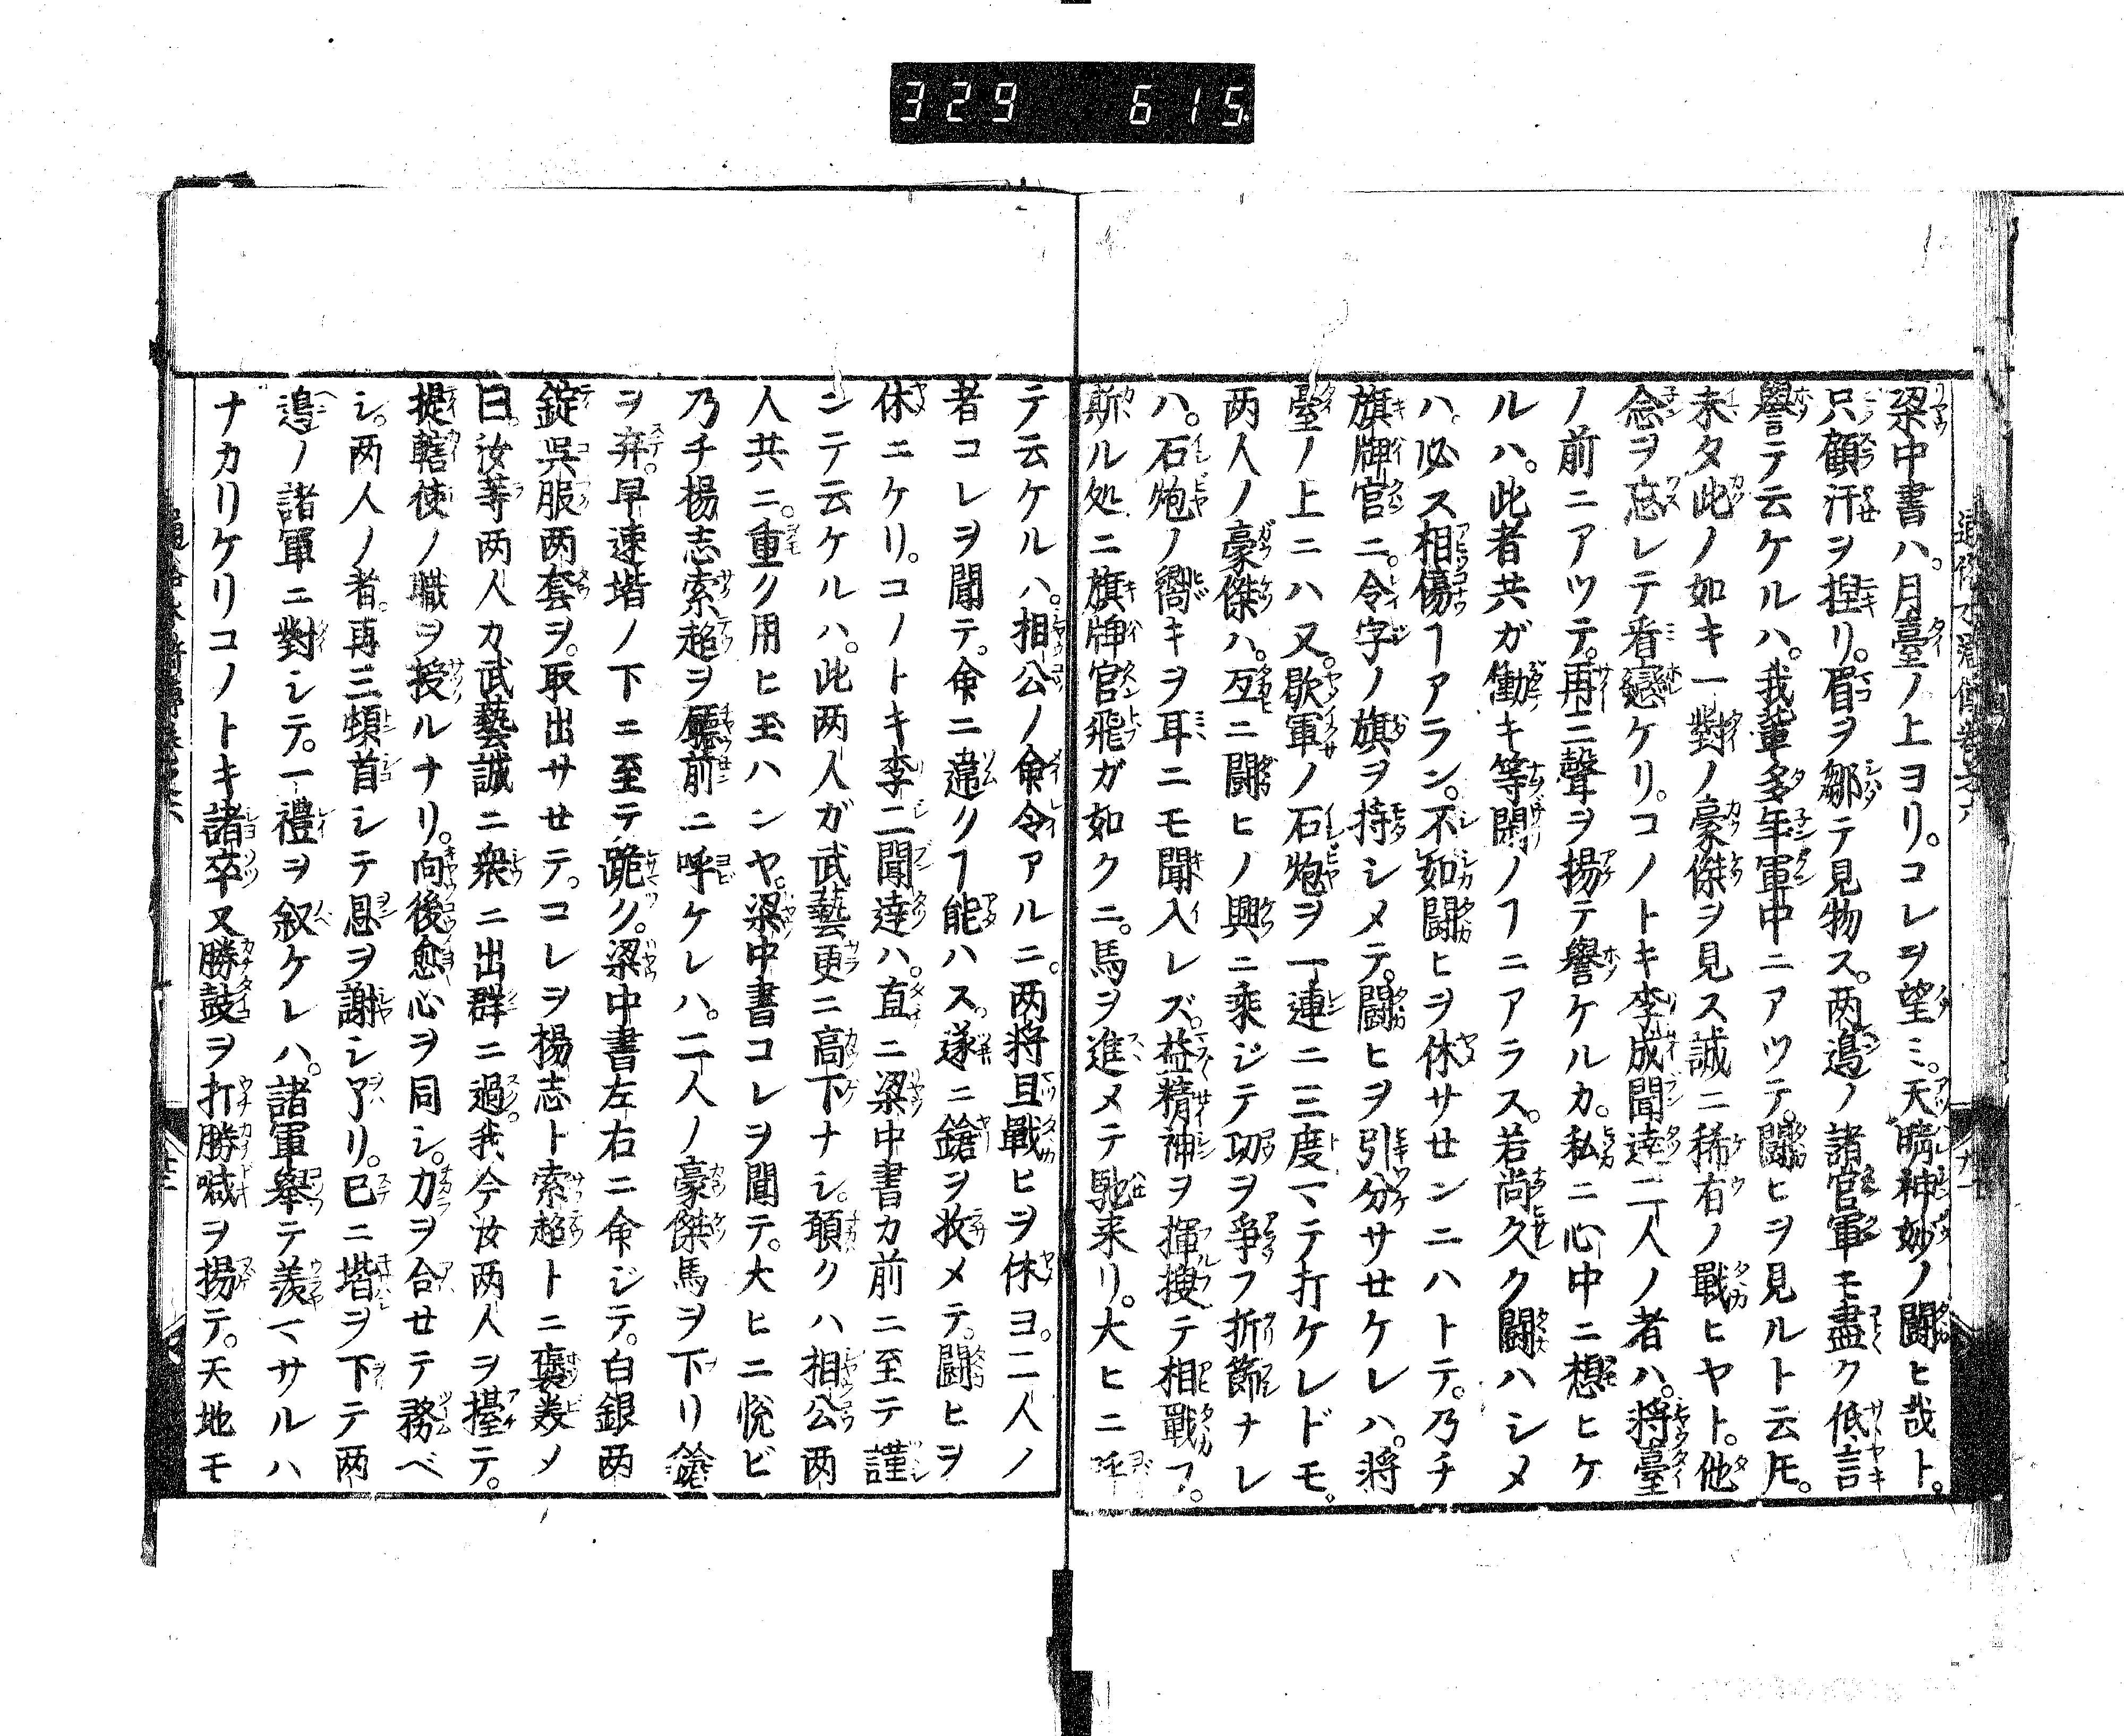 329 615
梁中書ハ。月臺ノ上ヨリ。コレヲ望ミ。天晴神妙ノ闘ヒ哉ト。
只顧汗ヲ揑リ。眉ヲ皺テ見物ス。两邉ノ諸官軍モ盡ク低言
譽テ云ケルハ。我輩多年軍中ニアツテ。闘ヒヲ見ルト云𪜈。
未タ此ノ如キ一對ノ豪傑ヲ見ス誠ニ稀有ノ戰ヒヤト。他
念ヲ忘レテ看戀ケリ。コノトキ李成聞達二人ノ者ハ。將臺
ノ前ニアツテ。再三聲ヲ揚テ譽ケルカ。私ニ心中ニ想ヒケ
ルハ。此者共ガ働キ等閑ノヿニアラス。若尚久ク闘ハシメ
ハ。必ス相傷ヿアラン。不如闘ヒヲ休サセンニハトテ。乃チ
旗牌官ニ。令字ノ旗ヲ持シメテ。闘ヒヲ引分サセケレハ。将
臺ノ上ニハ又。歇軍ノ石炮ヲ一連ニ三度マテ打ケレドモ。
两人ノ豪傑ハ。互ニ闘ヒノ興ニ乘ジテ功ヲ爭フ折節ナレ
ハ。石炮ノ響キヲ耳ニモ聞入レズ。益精神ヲ揮搜テ相戰フ。
斯ル処ニ旗牌官飛ガ如クニ。馬ヲ進メテ馳来リ。大ヒニ呼
テ云ケルハ。相公ノ命令アルニ。两将且戰ヒヲ休ヨ。二人ノ
者コレヲ聞テ。命ニ違クヿ能ハス。遂ニ鎗ヲ收メテ。闘ヒヲ
休ニケリ。コノトキ李二聞達ハ。直ニ梁中書カ前ニ至テ謹
ンテ云ケルハ。此两人ガ武藝更ニ高下ナシ。願クハ相公两
人共ニ。重ク用ヒ玉ハンヤ。梁中書コレヲ聞テ。大ヒニ悦ビ
乃チ楊志索超ヲ廳前ニ呼ケレハ。二人ノ豪傑馬ヲ下リ鎗
ヲ弃。早速堦ノ下ニ至テ跪ク。梁中書左右ニ命ジテ。白銀两
錠呉服两套ヲ。取出サセテ。コレヲ楊志ト索超トニ褒美メ
曰。汝等两人カ武藝誠ニ衆ニ出群ニ過。我今汝两人ヲ擡テ。
提轄使ノ職ヲ授ルナリ。向後愈心ヲ同シ。力ヲ合セテ務ベ
シ。两人ノ者。再三頓首シテ恩ヲ謝シ了リ。已ニ堦ヲ下テ两
邉ノ諸軍ニ對シテ。一禮ヲ叙ケレハ。諸軍擧テ羨マサルハ
ナカリケリコノトキ諸卒又勝鼓ヲ打勝喊ヲ揚テ。天地モ